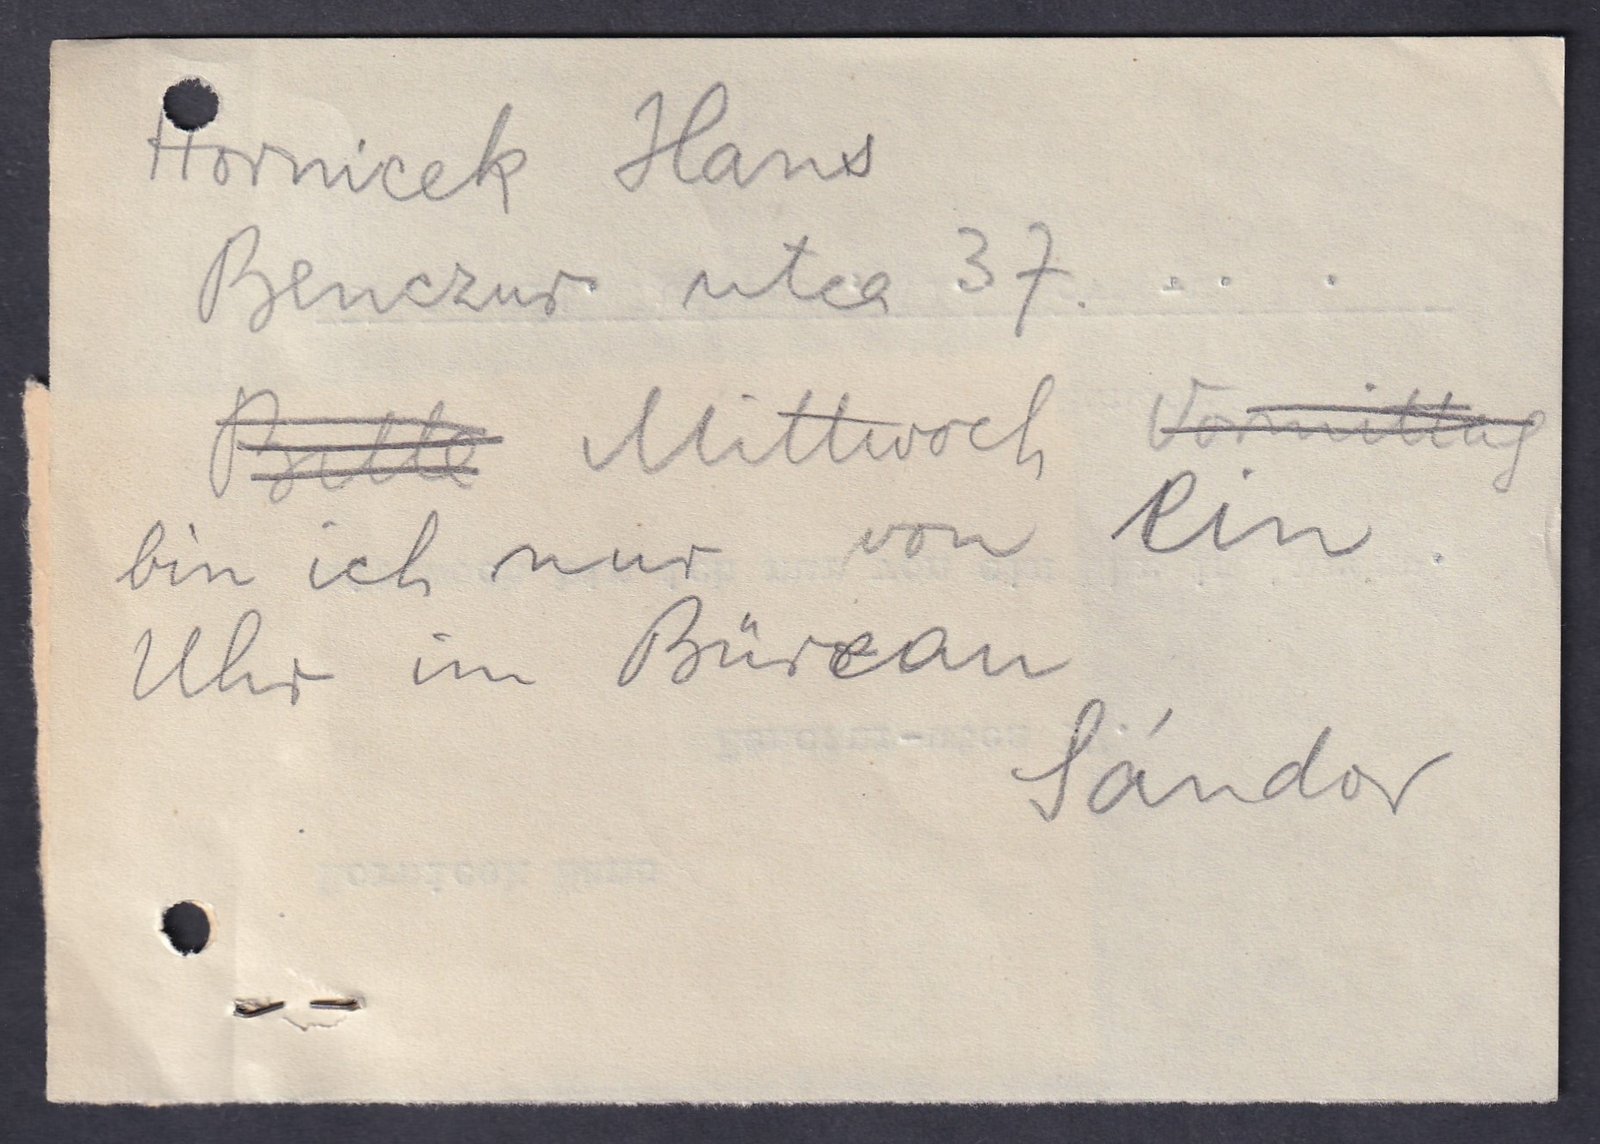 Hornicek Hans
Benczur utca 37.
Bitte Mittwoch Vormittag
bin ich nur von ein
Uhr im Büreau
Sándor